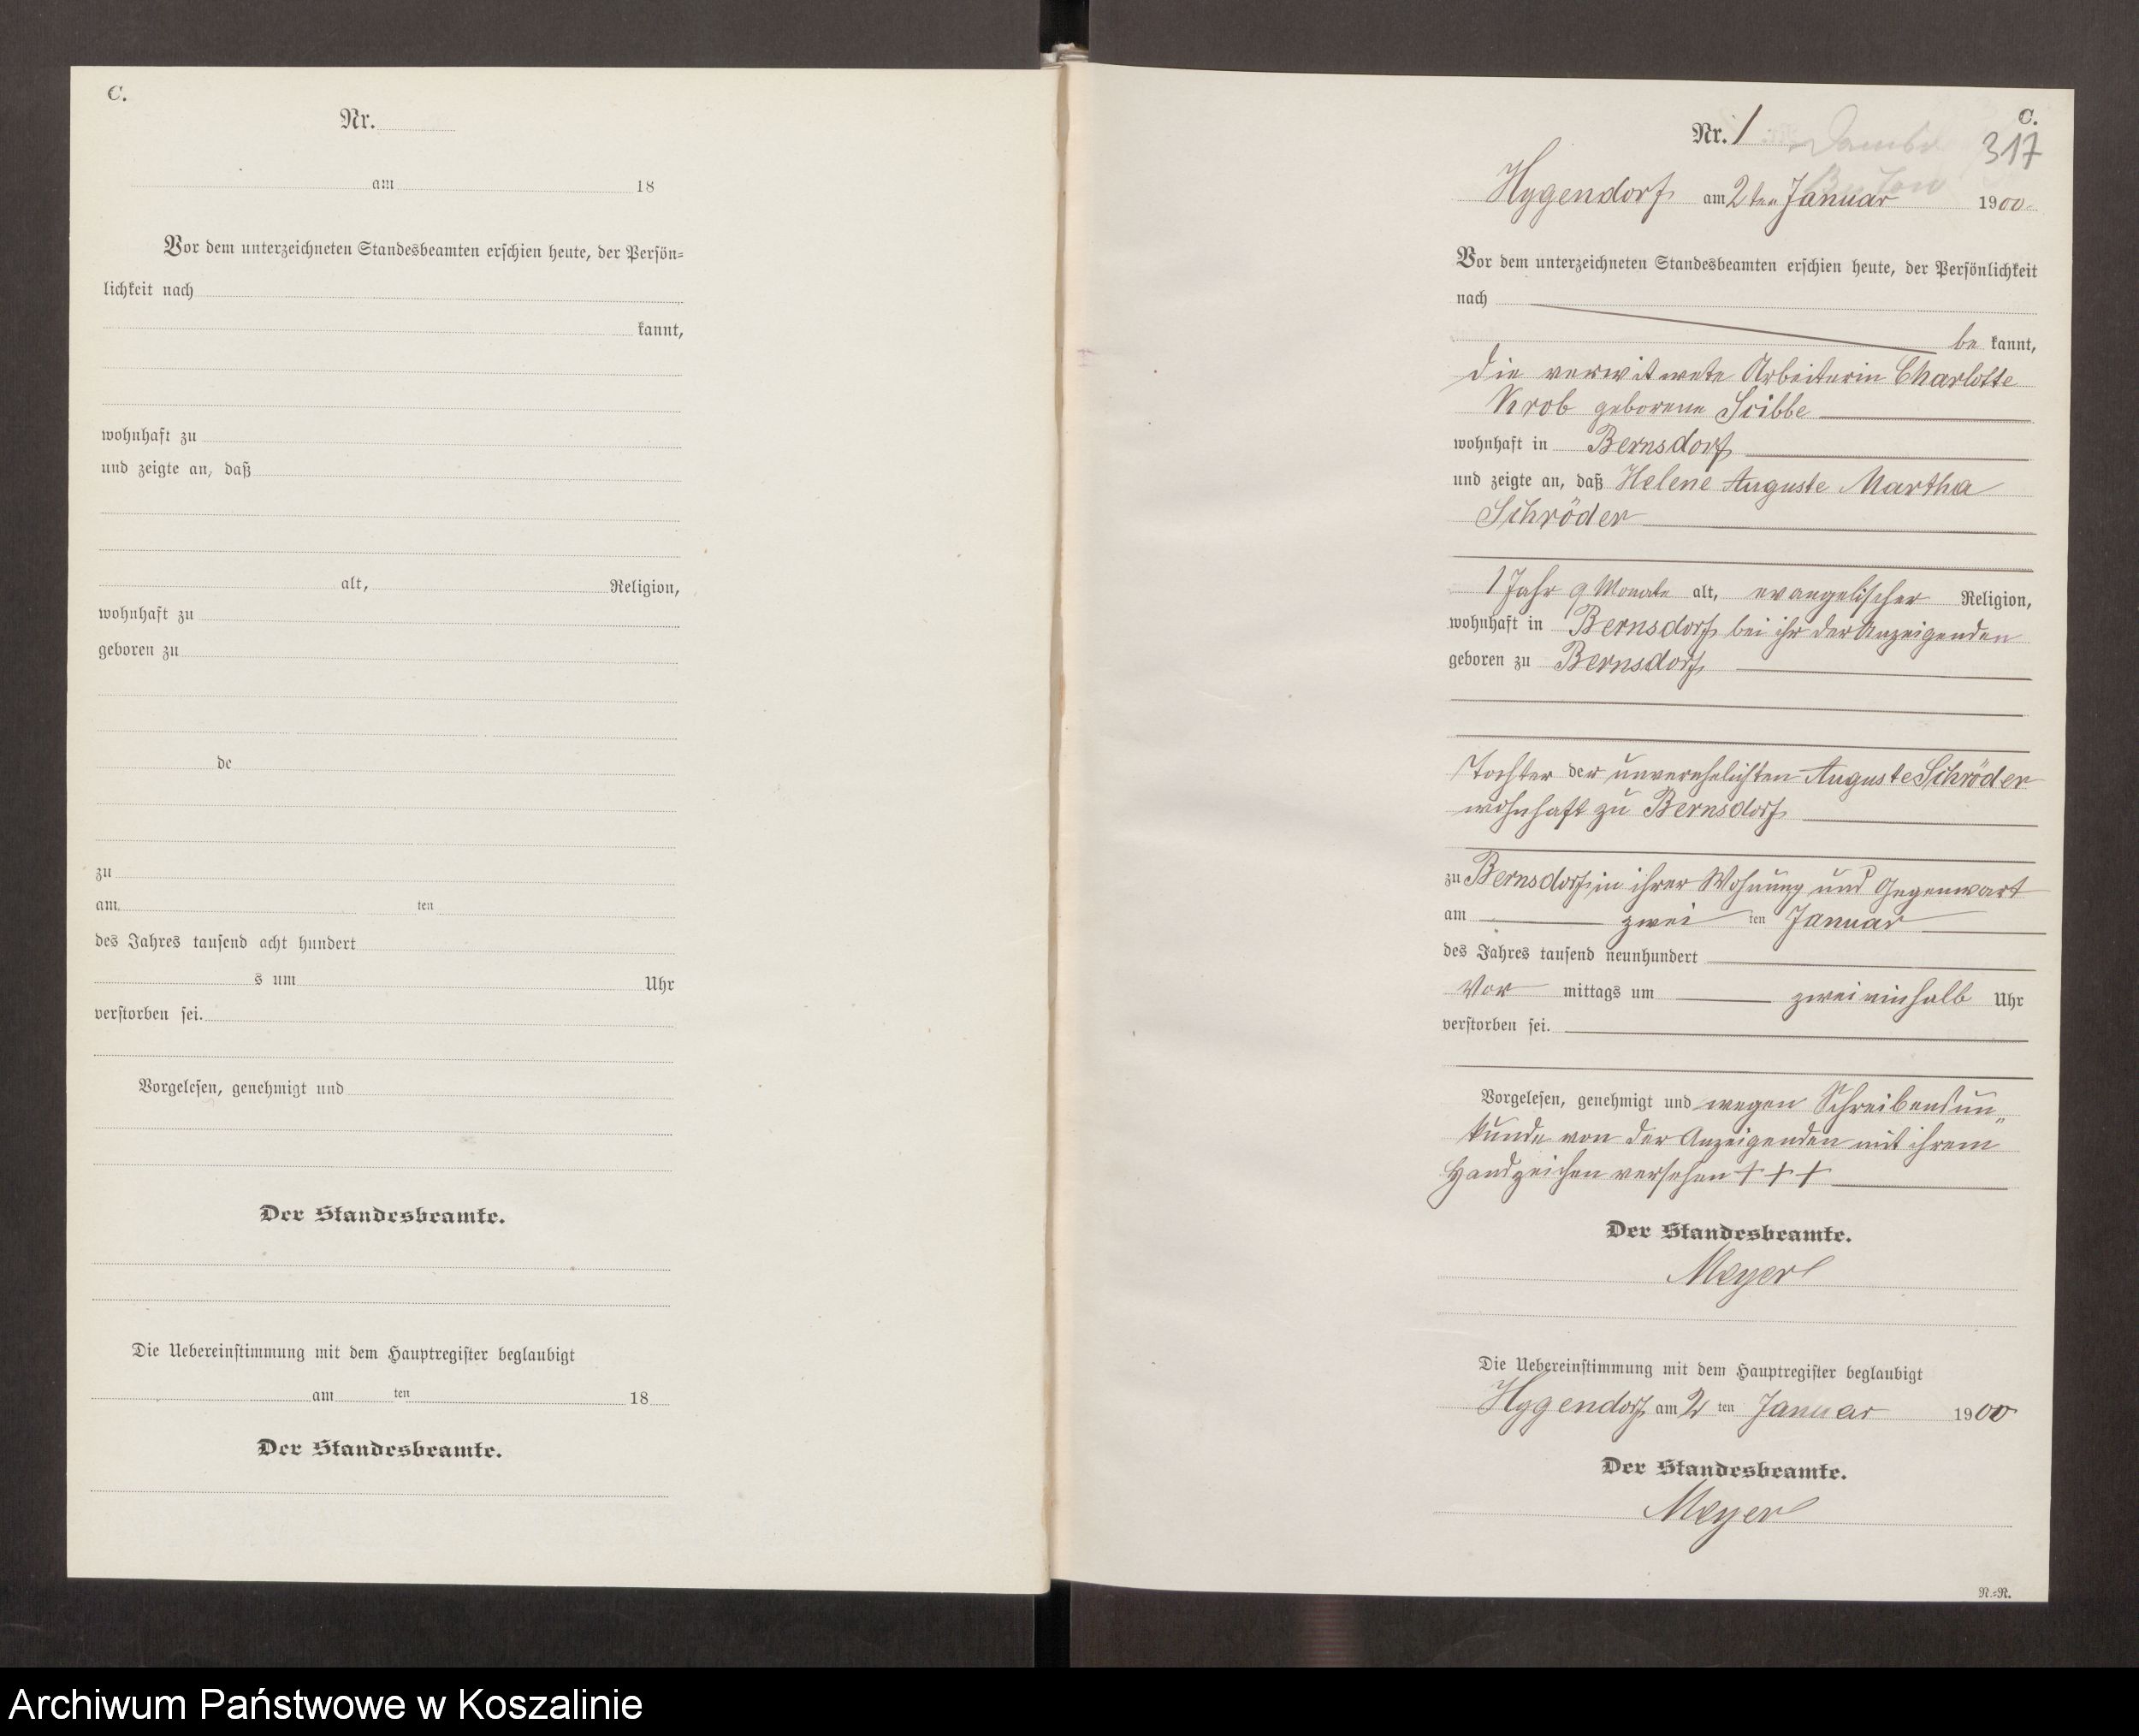 C.
Nr.
am 18
Vor dem unterzeichneten Standesbeamten erschien heute, der Persön=
lichkeit nach
kannt,
wohnhaft zu
und zeigte an, daß
alt, Religion,
wohnhaft zu
geboren zu
de
zu
am ten
des Jahres tausend acht hundert
s um Uhr
verstorben sei.
Vorgelesen, genehmigt und
Der Standesbeamte.
Die Uebereinstimmung mit dem Hauptregister beglaubigt
am ten 18
Der Standesbeamte.
C.
Nr. 1
317
Hygendorf am 2ten Januar 1900
Vor dem unterzeichneten Standesbeamten erschien heute, der Persönlichkeit
nach
be kannt,
die verwitwete Arbeiterin Charlotte
Krob geborene Scibbe
wohnhaft in Bernsdorf
und zeigte an, daß Helene Auguste Martha
Schröder
1 Jahr 9 Monate alt, evangelischer Religion,
wohnhaft in Bernsdorf bei ihr der Anzeigenden
geboren zu Bernsdorf
Tochter der unverehelichten Auguste Schröder
wohnhaft zu Bernsdorf
zu Bernsdorf in ihrer Wohnung und Gegenwart
am zwei ten Januar
des Jahres tausend neunhundert
Vor mittags um zweieinhalb Uhr
verstorben sei.
Vorgelesen, genehmigt und wegen Schreibensun„
kunde von der Anzeigenden mit ihrem
Handzeichen versehen + + +
Der Standesbeamte.
Meyer
Die Uebereinstimmung mit dem Hauptregister beglaubigt
Hygendorf am 2 ten Januar 1900
Der Standesbeamte.
Meyer
N.=R.
Archiwum Państwowe w Koszalinie